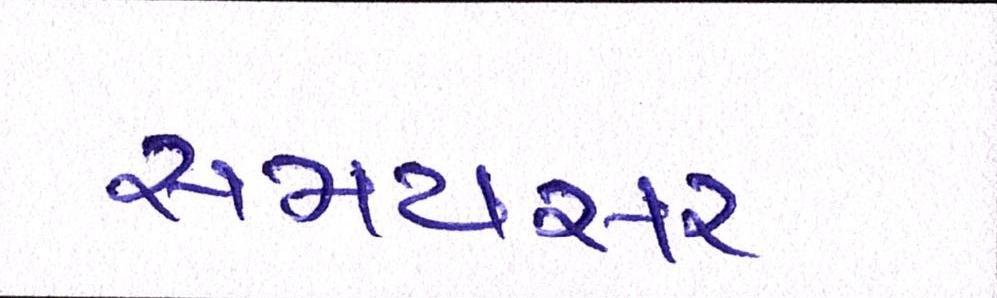 સમયસર